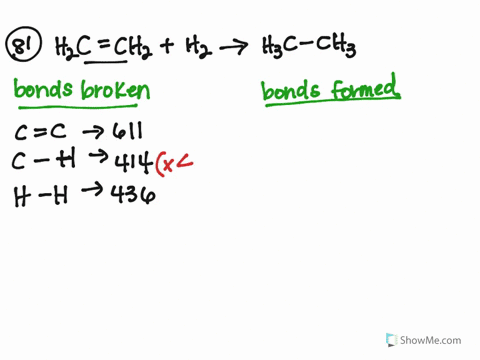 81 H₂C=CH₂ + H₂ → H₃C-CH₃
bonds broken
bonds formed
C=C → 611
C-H → 414 (x
H-H → 436
ShowMe.com